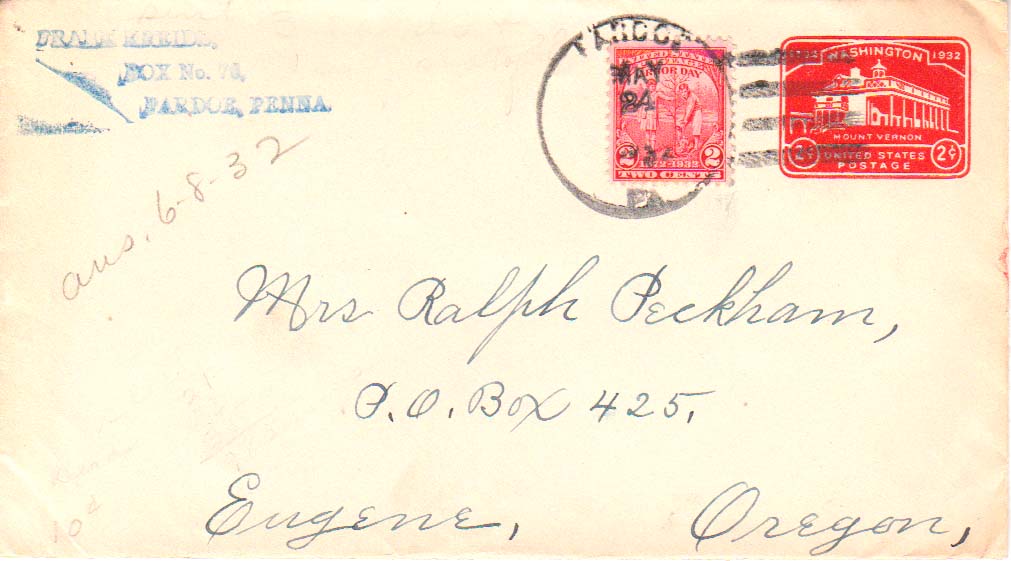 FRANK
BOX No. 76,
PARDOE, PENNA.
PARDOE
MAY
24
PA
UNITED STATES
POSTAGE
ARBOR DAY
2 1872-1932 2
TWO CENTS
WASHINGTON 1932
MOUNT VERNON
2¢ UNITED STATES 2¢
POSTAGE
ans. 6-8-32
Mrs Ralph Peckham,
P.O. Box 425,
Eugene, Oregon,
21
10¢